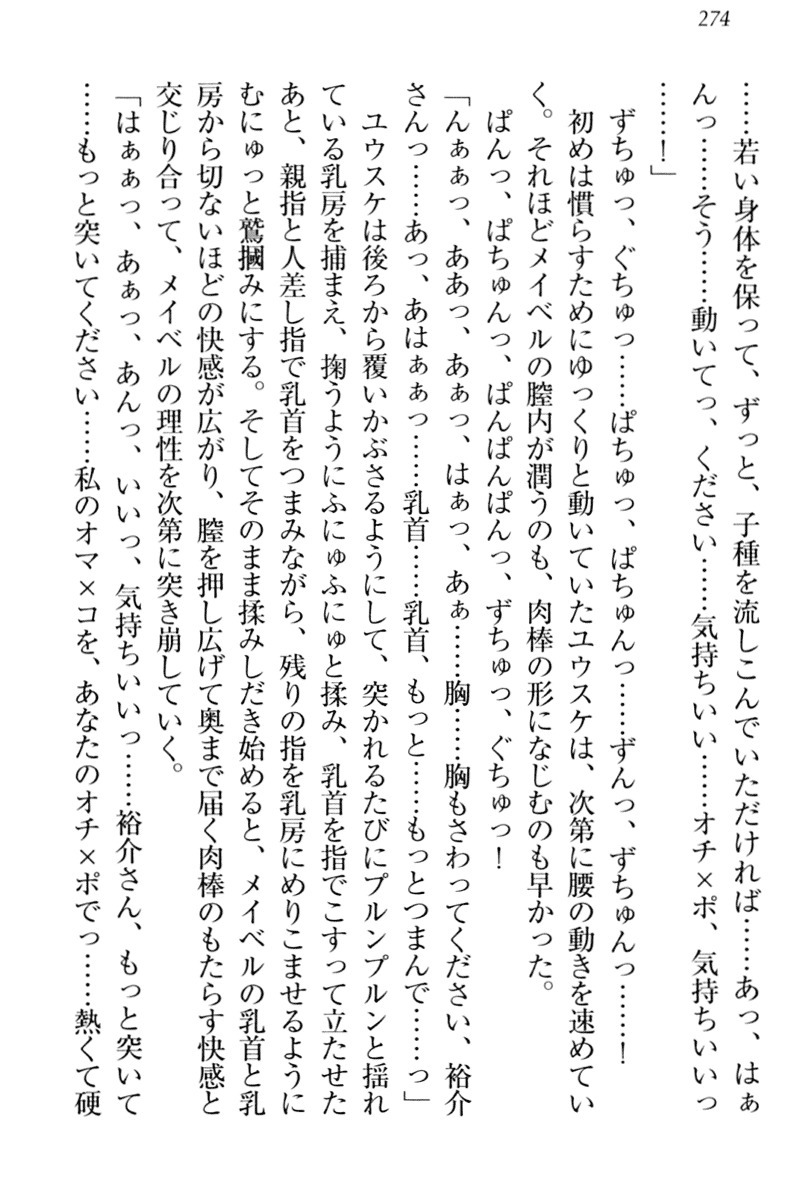 274
……若い身体を保って、ずっと、子種を流しこんでいただければ……あっ、はぁ
んっ……そう……動いてっ、ください……気持ちいい……オチ×ポ、気持ちいいっ
……！」
ずちゅっ、ぐちゅっ……ぱちゅっ、ぱちゅんっ……ずんっ、ずちゅんっ……！
初めは慣らすためにゆっくりと動いていたユウスケは、次第に腰の動きを速めてい
く。それほどメイベルの膣内が潤うのも、肉棒の形になじむのも早かった。
ぱんっ、ぱちゅんっ、ぱんぱんぱんっ、ずちゅっ、ぐちゅっ！
「んぁぁっ、ああっ、あぁっ、はぁっ、あぁ……胸……胸もさわってください、裕介
さんっ……あっ、あはぁぁっ……乳首……乳首、もっと……もっとつまんで……っ」
ユウスケは後ろから覆いかぶさるようにして、突かれるたびにプルンプルンと揺れ
ている乳房を捕まえ、掬うようにふにゅふにゅと揉み、乳首を指でこすって立たせた
あと、親指と人差し指で乳首をつまみながら、残りの指を乳房にめりこませるように
むにゅっと鷲摑みにする。そしてそのまま揉みしだき始めると、メイベルの乳首と乳
房から切ないほどの快感が広がり、膣を押し広げて奥まで届く肉棒のもたらす快感と
交じり合って、メイベルの理性を次第に突き崩していく。
「はぁぁっ、あぁっ、あんっ、いいっ、気持ちいいっ……裕介さん、もっと突いて
……もっと突いてください……私のオマ×コを、あなたのオチ×ポでっ……熱くて硬